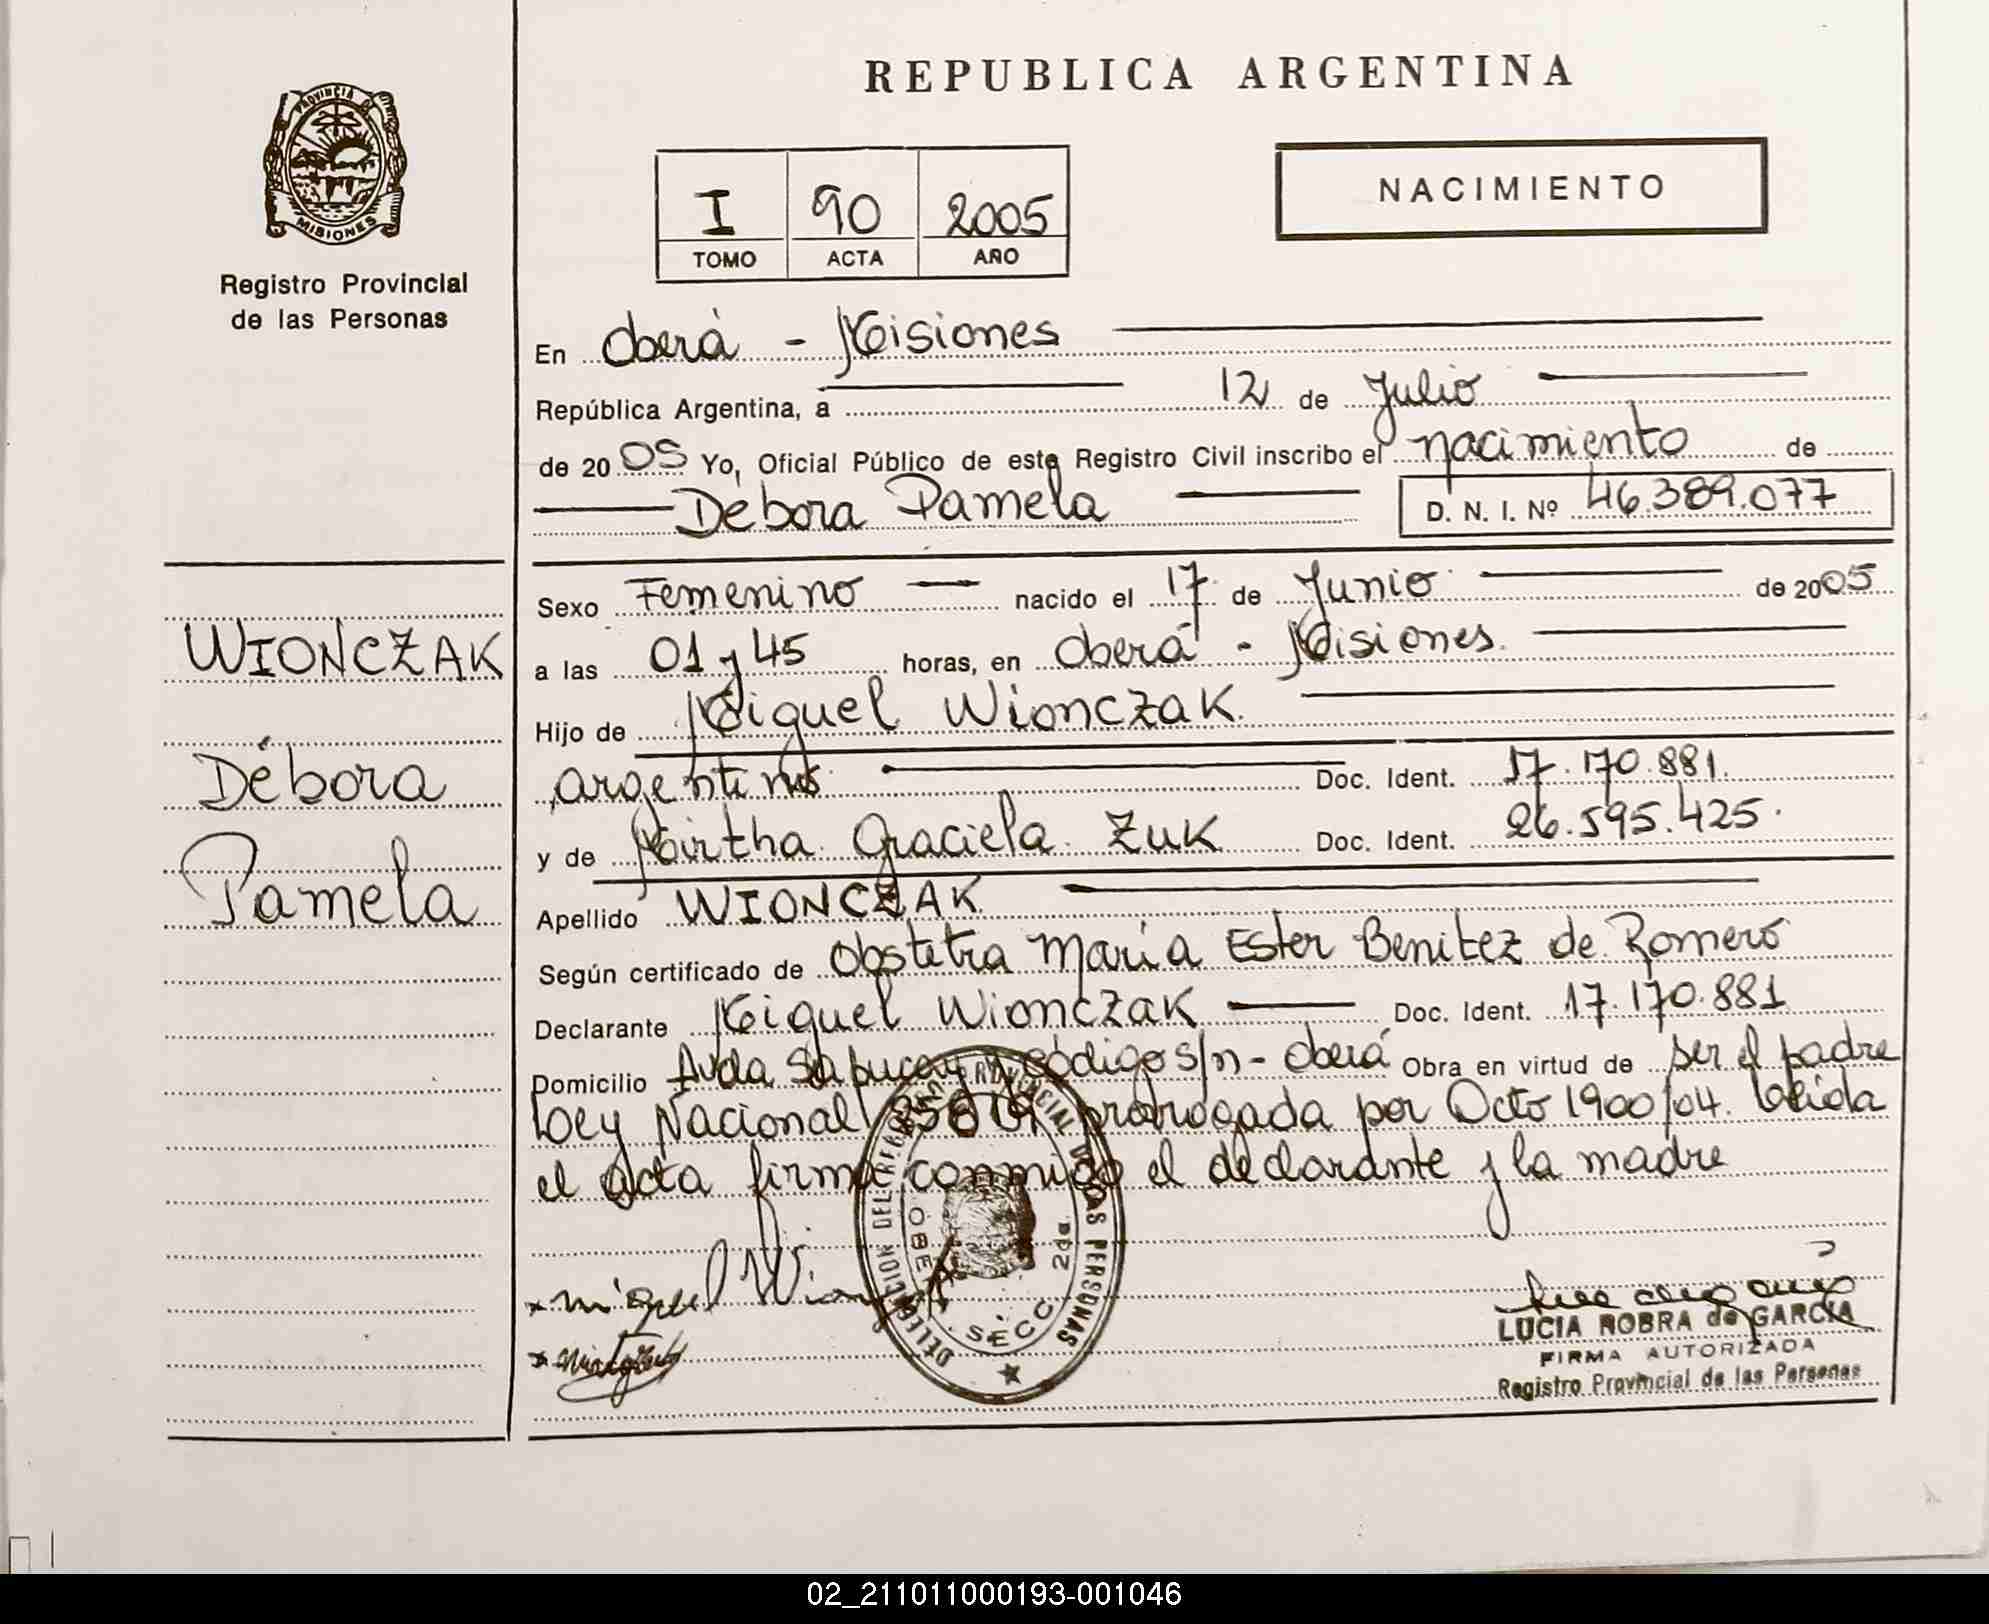 REPUBLICA ARGENTINA
PROVINCIA DE
MISIONES
Registro Provincial
de las Personas
I 90 2005
TOMO ACTA AÑO
NACIMIENTO
En Oberá - Misiones
República Argentina, a 12 de Julio
de 2005 Yo, Oficial Público de este Registro Civil inscribo el nacimiento de
Débora Pamela D. N. I. Nº 46.389.077
WIONCZAK
Débora
Pamela
Sexo Femenino nacido el 17 de Junio de 2005
a las 01 y 45 horas, en Oberá - Misiones.
Hijo de Miguel Wionczak.
argentino Doc. Ident. 17.170.881.
y de Mirtha Graciela Zuk Doc. Ident. 26.595.425.
Apellido WIONCZAK
Según certificado de Obstetra María Ester Benitez de Romero
Declarante Miguel Wionczak Doc. Ident. 17.170.881
Domicilio Avda Sapucay y Código s/n - Oberá Obra en virtud de ser el padre
Ley Nacional 25819 prorrogada por Dcto 1900/04. Leida
el acta firma conmigo el declarante y la madre
DELEGACION DEL REGISTRO PROVINCIAL DE LAS PERSONAS
OBERA
SECC 2da
x Miguel
LUCIA ROBRA de GARCIA
FIRMA AUTORIZADA
Registro Provincial de las Personas
02_211011000193-001046